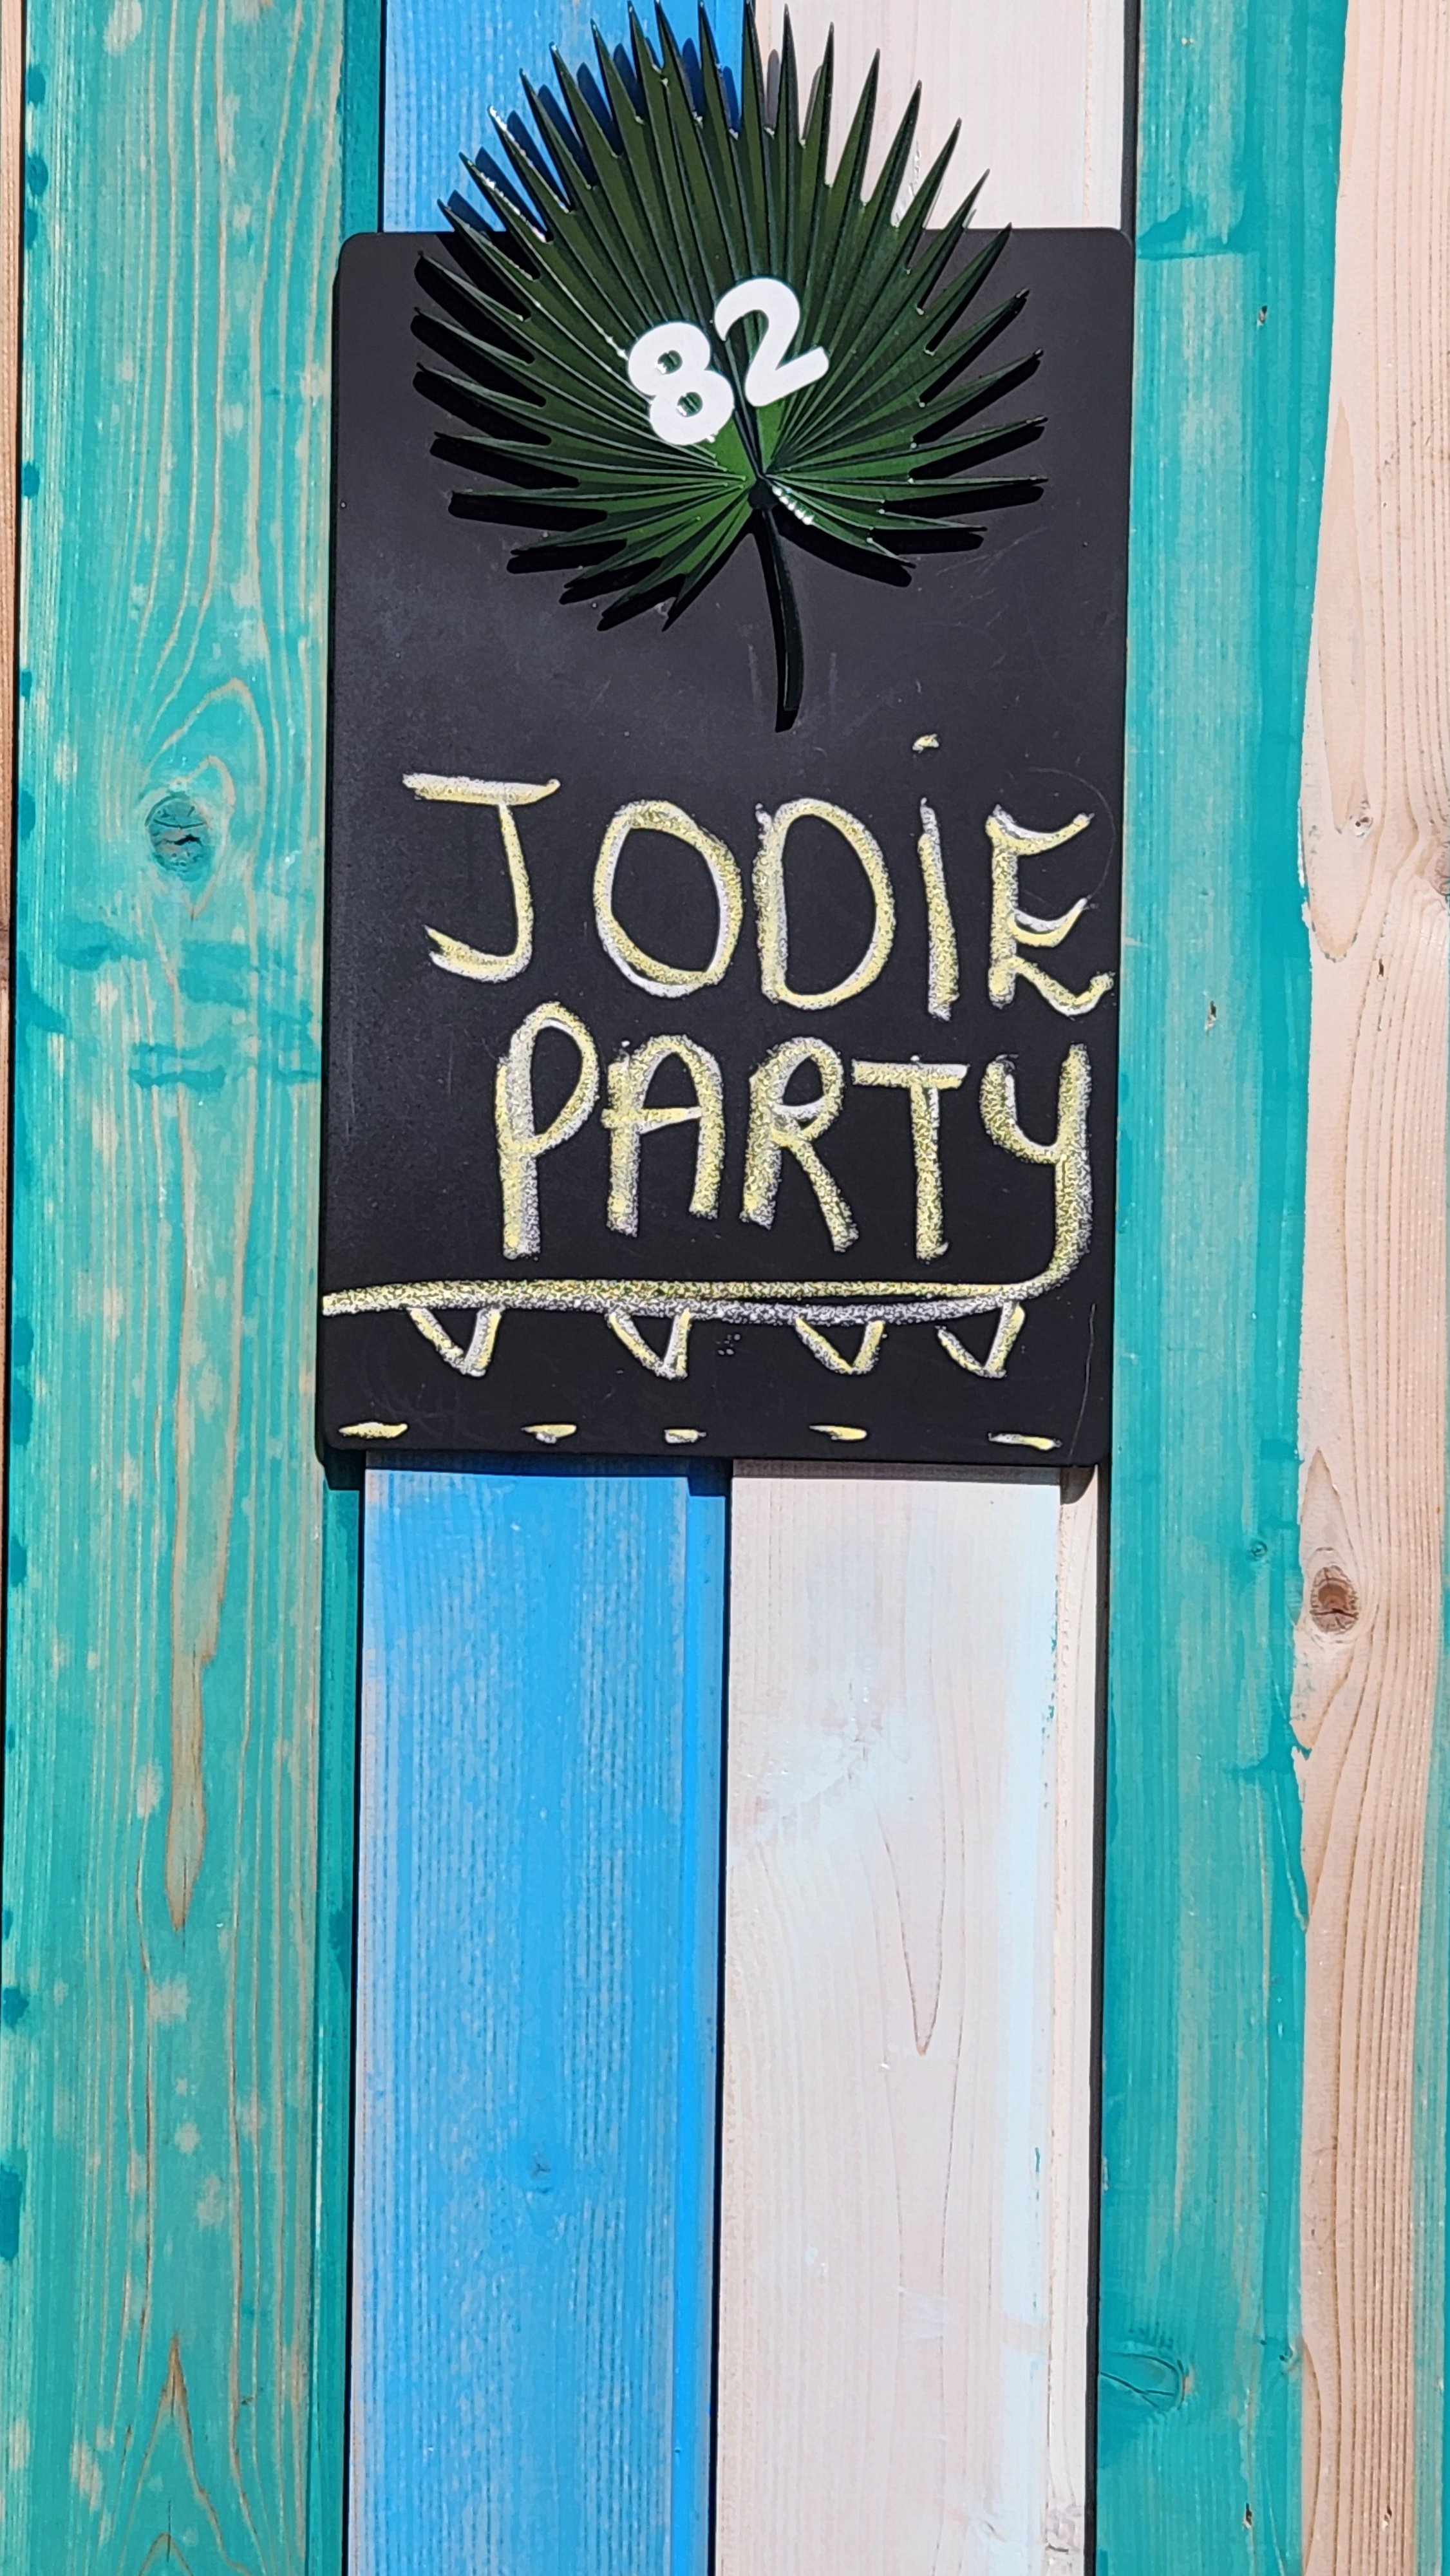 82
JODiE
PARTY